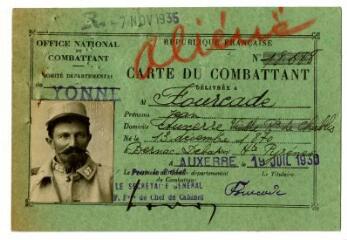 -7 NOV 1935
aliéné
OFFICE NATIONAL
DU
COMBATTANT
RÉPUBLIQUE FRANÇAISE
COMITÉ DÉPARTEMENTAL
de
YONNE
N°
CARTE DU COMBATTANT
DÉLIVRÉE A
M Fourcade
Prénoms Jean
Domicile Auxerre
Né le 13 décembre 1879
à Bernac-Debat Htes Pyrénées
A AUXERRE, 19 JUIL 1930
du Combattant
Le Titulaire
LE SECRÉTAIRE GÉNÉRAL
Fourcade
Chef de Cabinet